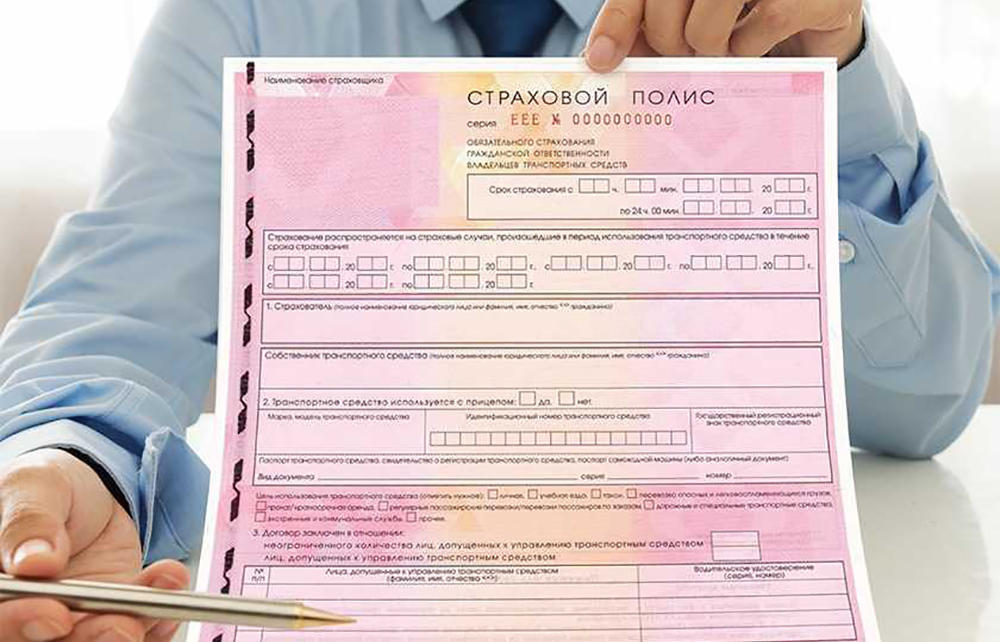 Наименование страховщика
СТРАХОВОЙ ПОЛИС
серия ЕЕЕ № 0000000000
ОБЯЗАТЕЛЬНОГО СТРАХОВАНИЯ
ГРАЖДАНСКОЙ ОТВЕТСТВЕННОСТИ
ВЛАДЕЛЬЦЕВ ТРАНСПОРТНЫХ СРЕДСТВ
Срок страхования с ч. мин. 20 г.
по 24 ч. 00 мин. 20 г.
Страхование распространяется на страховые случаи, произошедшие в период использования транспортного средства в течение
срока страхования
с 20 г. по 20 г., с 20 г. по 20 г.,
с 20 г. по 20 г.
1. Страхователь (полное наименование юридического лица или фамилия, имя, отчество <*> гражданина)
Собственник транспортного средства (полное наименование юридического лица или фамилия, имя, отчество <*> гражданина)
2. Транспортное средство используется с прицепом: да, нет.
Марка, модель транспортного средства
Идентификационный номер транспортного средства
Государственный регистрационный
знак транспортного средства
Паспорт транспортного средства, свидетельство о регистрации транспортного средства, паспорт самоходной машины (либо аналогичный документ)
Вид документа серия номер
Цель использования транспортного средства (отметить нужное): личная, учебная езда, такси, перевозка опасных и легковоспламеняющихся грузов,
прокат/краткосрочная аренда, регулярные пассажирские перевозки/перевозки пассажиров по заказам, дорожные и специальные транспортные средства,
экстренные и коммунальные службы, прочее.
3. Договор заключен в отношении:
неограниченного количества лиц, допущенных к управлению транспортным средством
лиц, допущенных к управлению транспортным средством
№
п/п
Лица, допущенные к управлению транспортным средством
(фамилия, имя, отчество <*>)
Водительское удостоверение
(серия, номер)